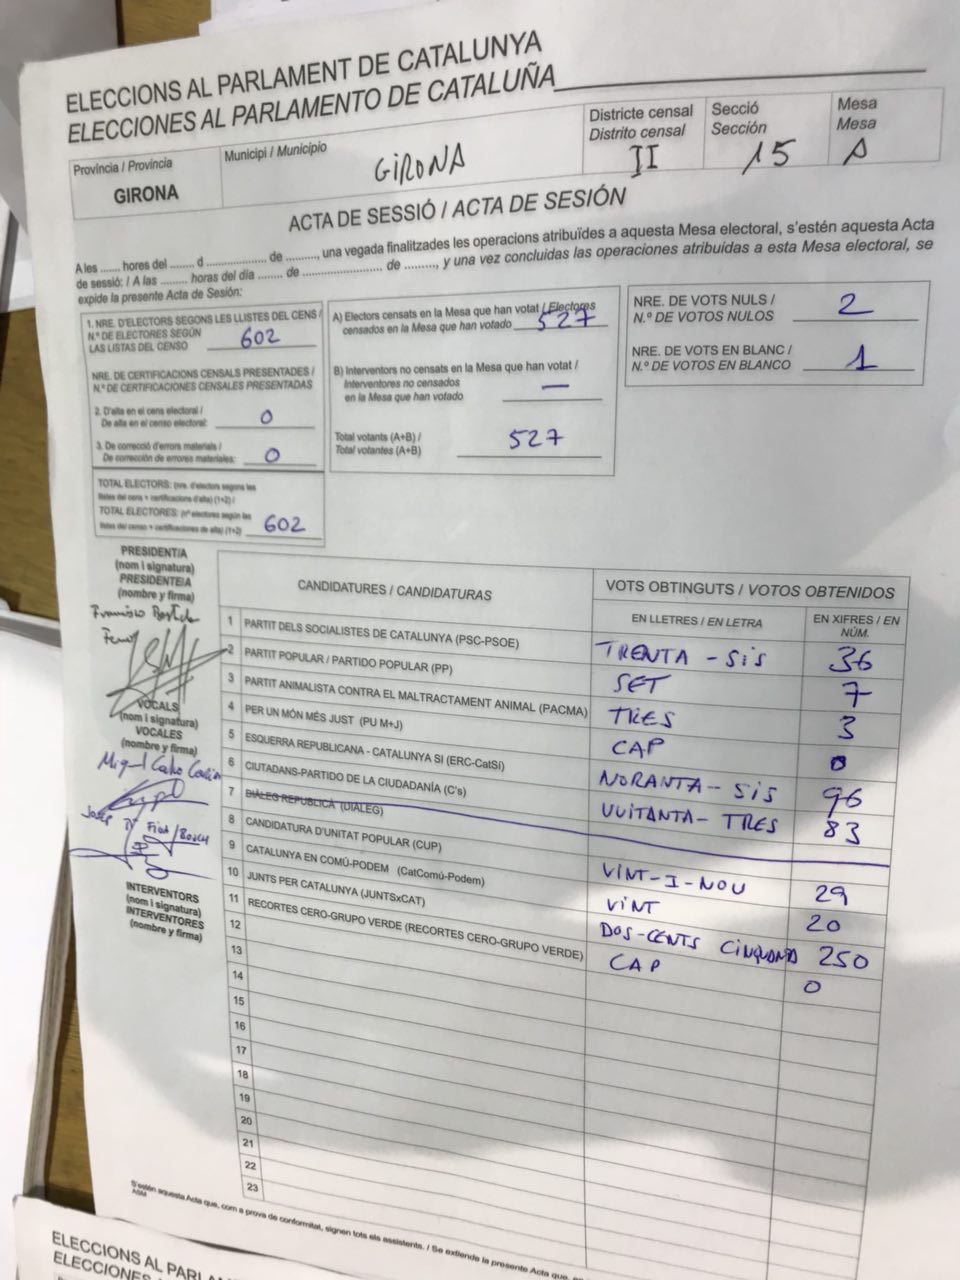 ELECCIONS AL PARLAMENT DE CATALUNYA
ELECCIONES AL PARLAMENTO DE CATALUÑA
Província / Provincia
GIRONA
Municipi / Municipio
GIRONA
Districte censal
Distrito censal
II
Secció
Sección
15
Mesa
Mesa
A
ACTA DE SESSIÓ / ACTA DE SESIÓN
A les ....... hores del ....... d ..................... de ........., una vegada finalitzades les operacions atribuïdes a aquesta Mesa electoral, s'estén aquesta Acta
de sessió: / A las ......... horas del día ....... de ..................... de ........., y una vez concluidas las operaciones atribuidas a esta Mesa electoral, se
expide la presente Acta de Sesión:
1. NRE. D'ELECTORS SEGONS LES LLISTES DEL CENS /
N.º DE ELECTORES SEGÚN
LAS LISTAS DEL CENSO 602
NRE. DE CERTIFICACIONS CENSALS PRESENTADES /
N.º DE CERTIFICACIONES CENSALES PRESENTADAS
2. D'alta en el cens electoral /
De alta en el censo electoral: 0
3. De correcció d'errors materials /
De corrección de errores materiales: 0
TOTAL ELECTORS: (nre. d'electors segons les
llistes del cens + certificacions d'alta) (1+2) /
TOTAL ELECTORES: (nº electores según las
listas del censo + certificaciones de alta) (1+2) 602
A) Electors censats en la Mesa que han votat / Electores
censados en la Mesa que han votado 527
B) Interventors no censats en la Mesa que han votat /
Interventores no censados
en la Mesa que han votado —
Total votants (A+B) /
Total votantes (A+B) 527
NRE. DE VOTS NULS /
N.º DE VOTOS NULOS 2
NRE. DE VOTS EN BLANC /
N.º DE VOTOS EN BLANCO 1
PRESIDENT/A
(nom i signatura)
PRESIDENTE/A
(nombre y firma)
Francisco
VOCALS
(nom i signatura)
VOCALES
(nombre y firma)
Miquel
Josep
INTERVENTORS
(nom i signatura)
INTERVENTORES
(nombre y firma)
CANDIDATURES / CANDIDATURAS
VOTS OBTINGUTS / VOTOS OBTENIDOS
EN LLETRES / EN LETRA
EN XIFRES / EN
NÚM.
1 PARTIT DELS SOCIALISTES DE CATALUNYA (PSC-PSOE) TRENTA - SIS 36
2 PARTIT POPULAR / PARTIDO POPULAR (PP) SET 7
3 PARTIT ANIMALISTA CONTRA EL MALTRACTAMENT ANIMAL (PACMA) TRES 3
4 PER UN MÓN MÉS JUST (PU M+J) CAP 0
5 ESQUERRA REPUBLICANA - CATALUNYA SI (ERC-CatSí) NORANTA - SIS 96
6 CIUTADANS-PARTIDO DE LA CIUDADANÍA (C's) VUITANTA - TRES 83
7 DIÀLEG REPUBLICÀ (DIÀLEG)
8 CANDIDATURA D'UNITAT POPULAR (CUP) VINT-I-NOU 29
9 CATALUNYA EN COMÚ-PODEM (CatComú-Podem) VINT 20
10 JUNTS PER CATALUNYA (JUNTSxCAT) DOS-CENTS CINQUANTA 250
11 RECORTES CERO-GRUPO VERDE (RECORTES CERO-GRUPO VERDE) CAP 0
12
13
14
15
16
17
18
19
20
21
22
23
S'estén aquesta Acta que, com a prova de conformitat, signen tots els assistents. / Se extiende la presente Acta que,
ASM
ELECCIONS AL PARLA
ELECCIONES AL